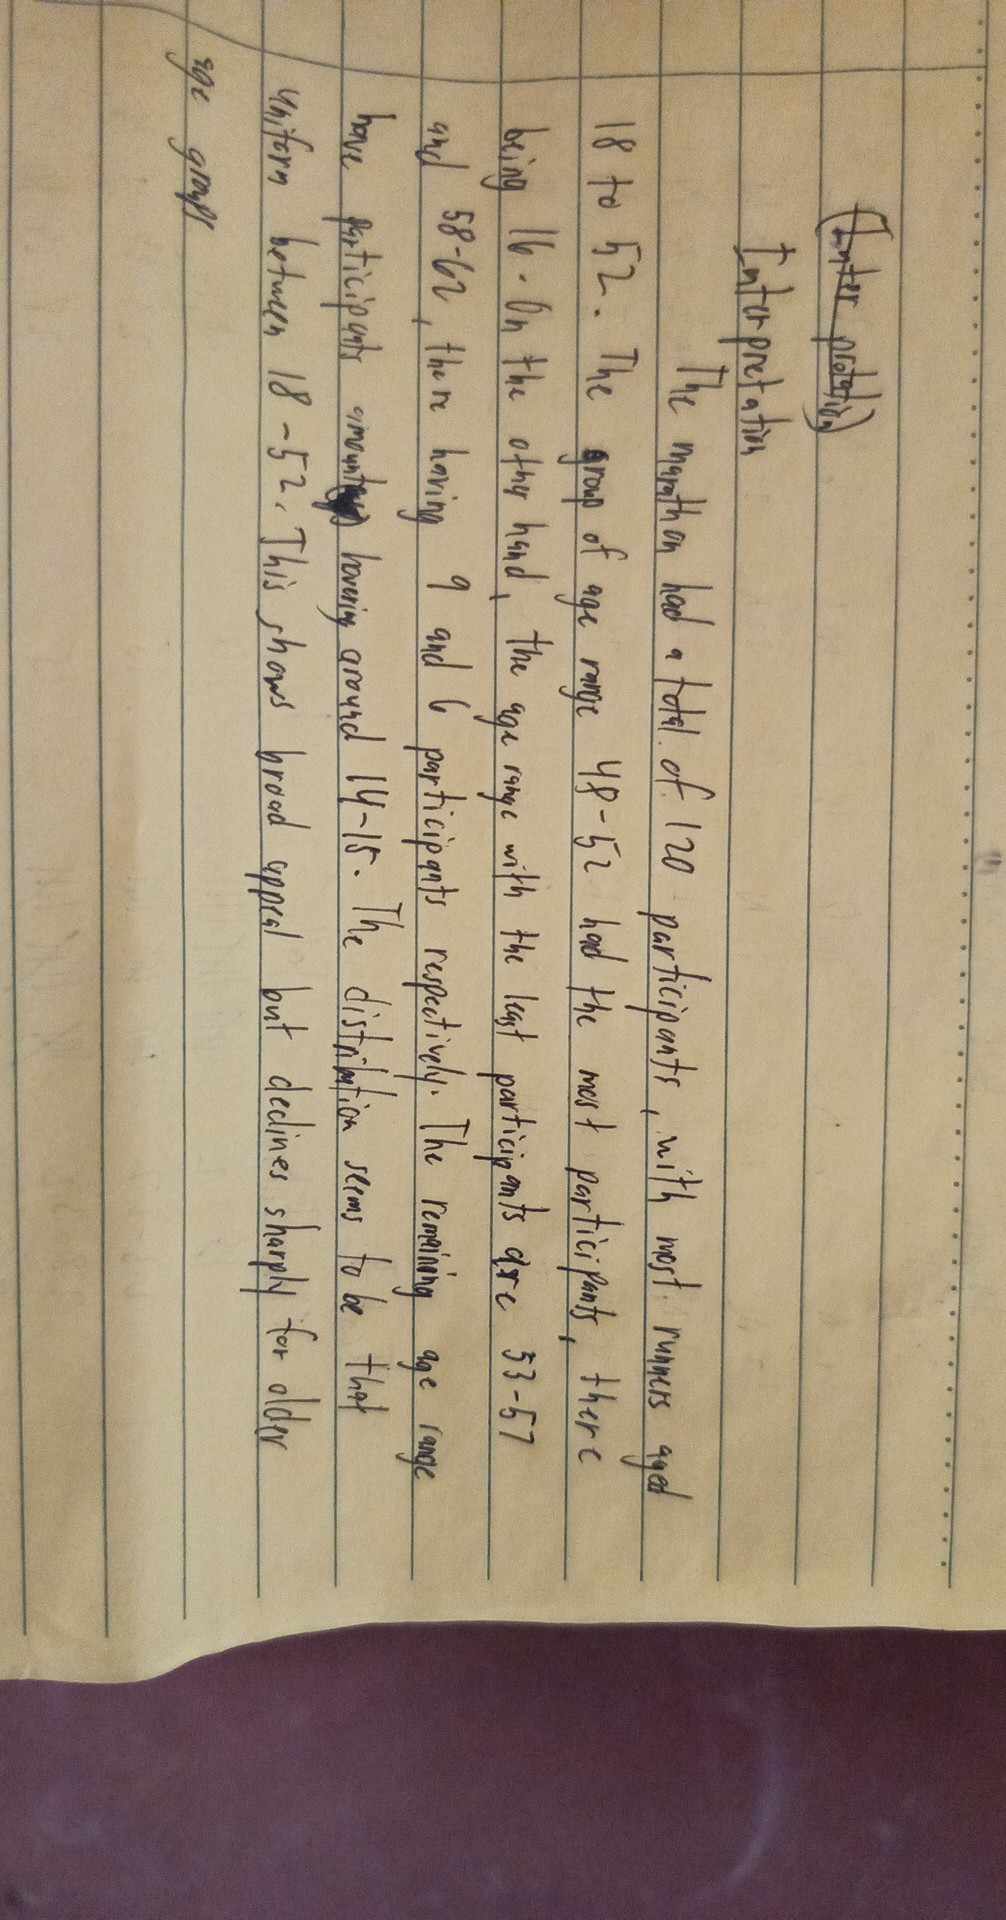 (Inter protation)
Interpretation
The marathon had a total of 120 participants, with most runners aged
18 to 52. The group of age range 48-52 had the most participants, there
being 16. On the other hand, the age range with the least participants are 53-57
and 58-62, there having 9 and 6 participants respectively. The remaining age range
have participants amount hovering around 14-15. The distribution seems to be that
uniform between 18-52. This shows broad appeal but declines sharply for older
age groups